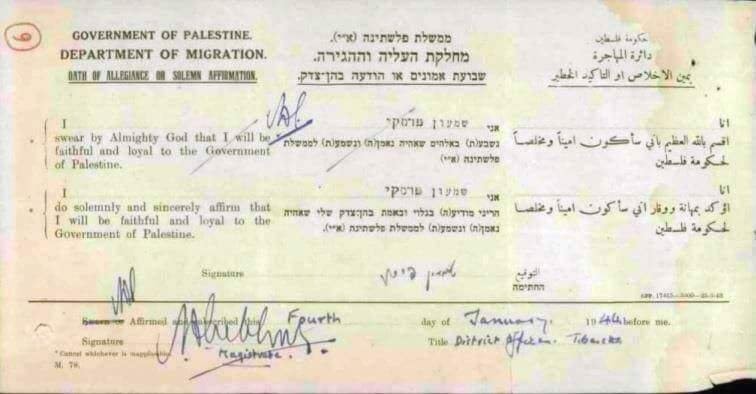 6
GOVERNMENT OF PALESTINE.
DEPARTMENT OF MIGRATION.
OATH OF ALLEGIANCE OR SOLEMN AFFIRMATION.
ממשלת פלשתינה (א״י).
מחלקת העליה וההגירה.
שבועת אמונים או הודעה בהן־צדק.
حكومة فلسطين
دائرة المهاجرة
يمين الاخلاص او التاكيد الخطير
I
swear by Almighty God that I will be
faithful and loyal to the Government
of Palestine.
אני שמעון פרסקי
נשבע(ת) באלהים שאהיה נאמן(ה) ונשמע(ת) לממשלת
פלשתינה (א״י)
انا
اقسم بالله العظيم باني سأكون اميناً ومخلصاً
لحكومة فلسطين
I
do solemnly and sincerely affirm that
I will be faithful and loyal to the
Government of Palestine.
אני שמעון פרסקי
הריני מודיע(ה) בגלוי ובאמת בהן־צדק שלי שאהיה
נאמן(ה) ונשמע(ת) לממשלת פלשתינה (א״י).
انا
اؤكد بمهانة ووقار اني سأكون اميناً ومخلصا
لحكومة فلسطين
Signature
التوقيع
החתימה
GPP. 17415—5000—25-3-43
Sworn or Affirmed and subscribed this Fourth day of January. 1944 before me.
Signature
Magistrate.
Title District Officer. Tiberias
* Cancel whichever is inapplicable.
M. 78.